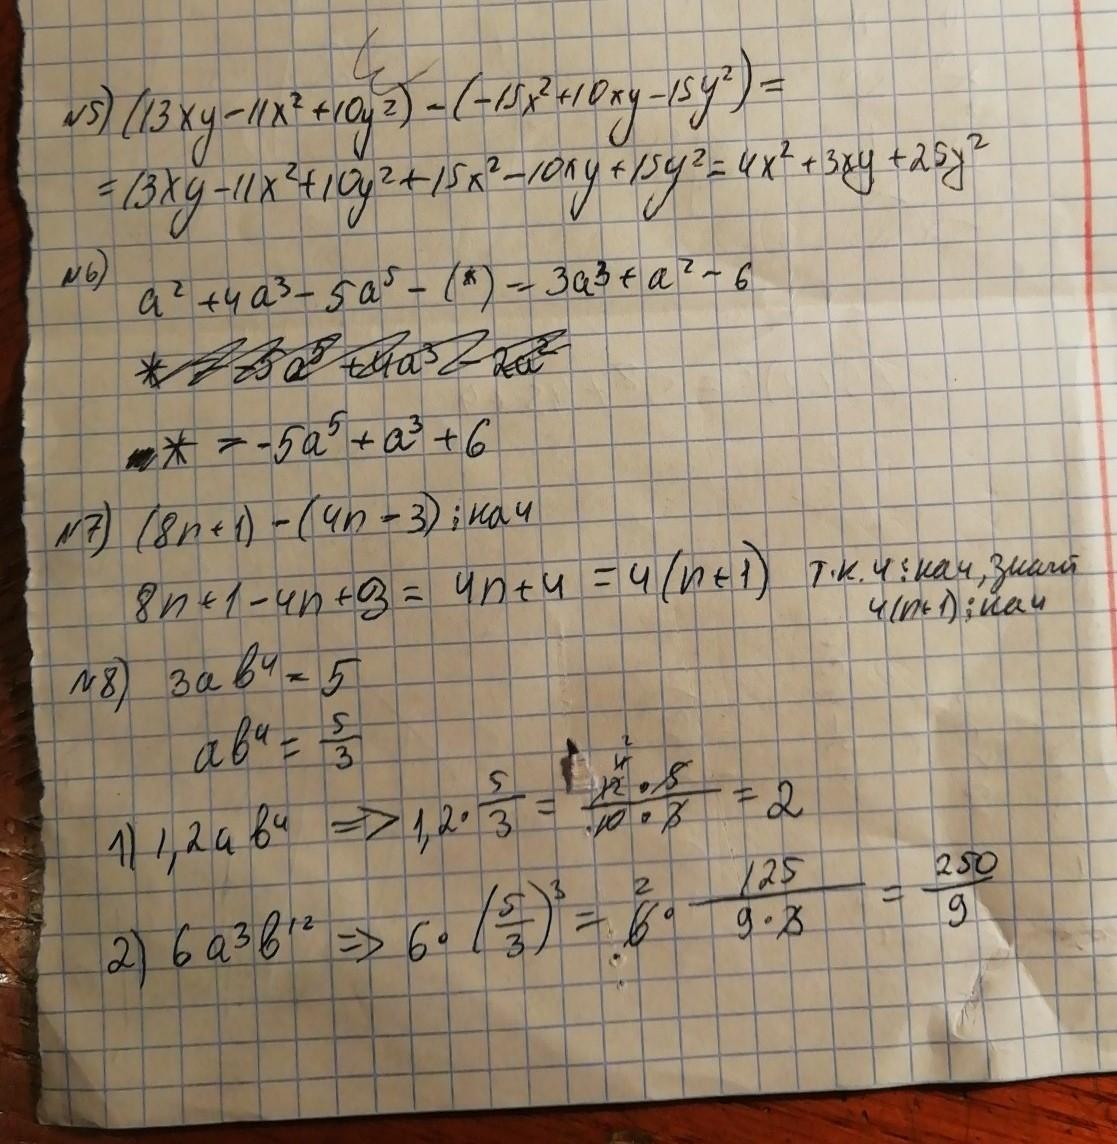 №5) (13xy-11x²+10y²)-(-15x²+10xy-15y²)=
=13xy-11x²+10y²+15x²-10xy+15y²=4x²+3xy+25y²
№6) a²+4a³-5a⁵-(*)=3a³+a²-6
* = -5a⁵+a³+6
№7) (8n+1)-(4n-3)⋮на4
8n+1-4n+3= 4n+4 =4(n+1) т.к. 4⋮на4, значит
4(n+1)⋮на4
№8) 3ab⁴=5
ab⁴=5/3
1) 1,2ab⁴ => 1,2·5/3=12·5/10·3=2
2) 6a³b¹² => 6·(5/3)³=6·125/9·3=250/9